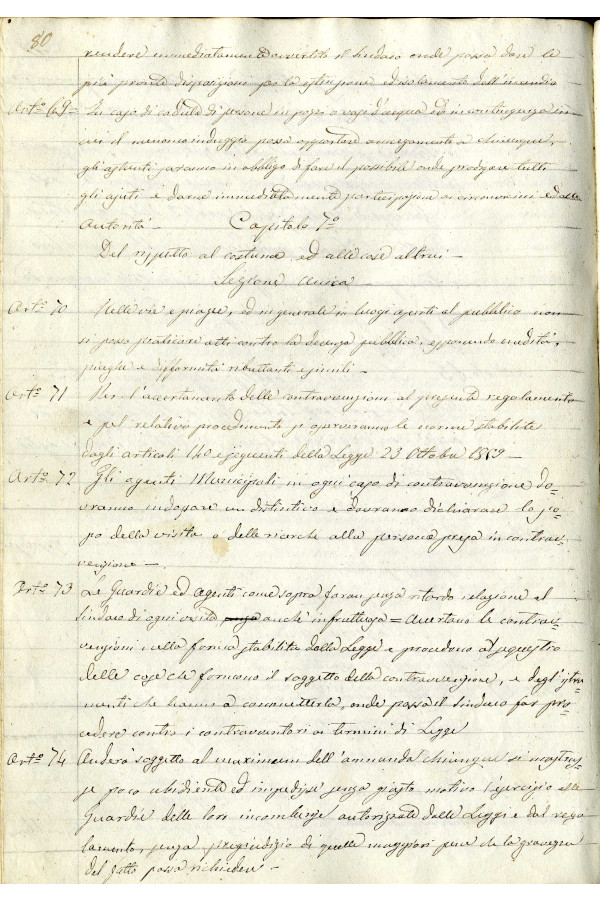 80
rendere immediatamente avvertito il Sindaco onde possa dare le
più pronte disposizioni per la estinzione ed isolamento dell'incendio
Art.º 69= In caso di caduta di persone in pozzi o vasi d'acqua od in contingenza in
cui il menomo indugio possa apportare annegamento a chiunque,
gli astanti saranno in obbligo di fare il possibile onde prodigare tutti
gli ajuti e darne immediatamente partecipazione ai circonvicini ed alle
Autorità - Capitolo 7º
Del rispetto al costume, ed alle cose altrui -
Sezione unica -
Art.º 70 Nelle vie e piazze, ed in generale in luogi aperti al pubblico non
si può praticare atti contro la decenza pubblica, esponendo nudità,
piaghe e difformità ributtanti e simili -
Art.º 71 Per l'accertamento delle contravvenzioni al presente regolamento
e pel relativo procedimento si osserveranno le norme stabilite
dagli articoli 140 e seguenti della Legge 23 Ottobre 1859 -
Art.º 72 Gli agenti Municipali in ogni caso di contravvenzione do-
vranno indossare un distintivo e dovranno dichiarare lo sco-
po della visita o delle ricerche alla persona presa in contrav-
venzione -
Art.º 73 Le Guardie ed agenti come sopra faran senza ritardo relazione al
Sindaco di ogni visita anche infruttuosa = accertano le contrav-
venzioni nella forma stabilita dalla Legge e procedono al sequestro
delle cose che formono il soggetto della contravvenzione, e degl'istru-
menti che hanno a commetterla, onde possa il Sindaco far pro-
cedere contro i contravventori ai termini di Legge
Art.º 74 Anderà soggetto al maximum dell'ammenda chiunque si mostras-
se poco ubidiente ed impedisse senza giusto motivo l'esercizio alle
Guardie delle loro incombenze autorizzate dalle Leggi e dal rego
lamento, senza pregiudizio di quelle maggiori pene che la gravezza
del fatto possa richiedere -